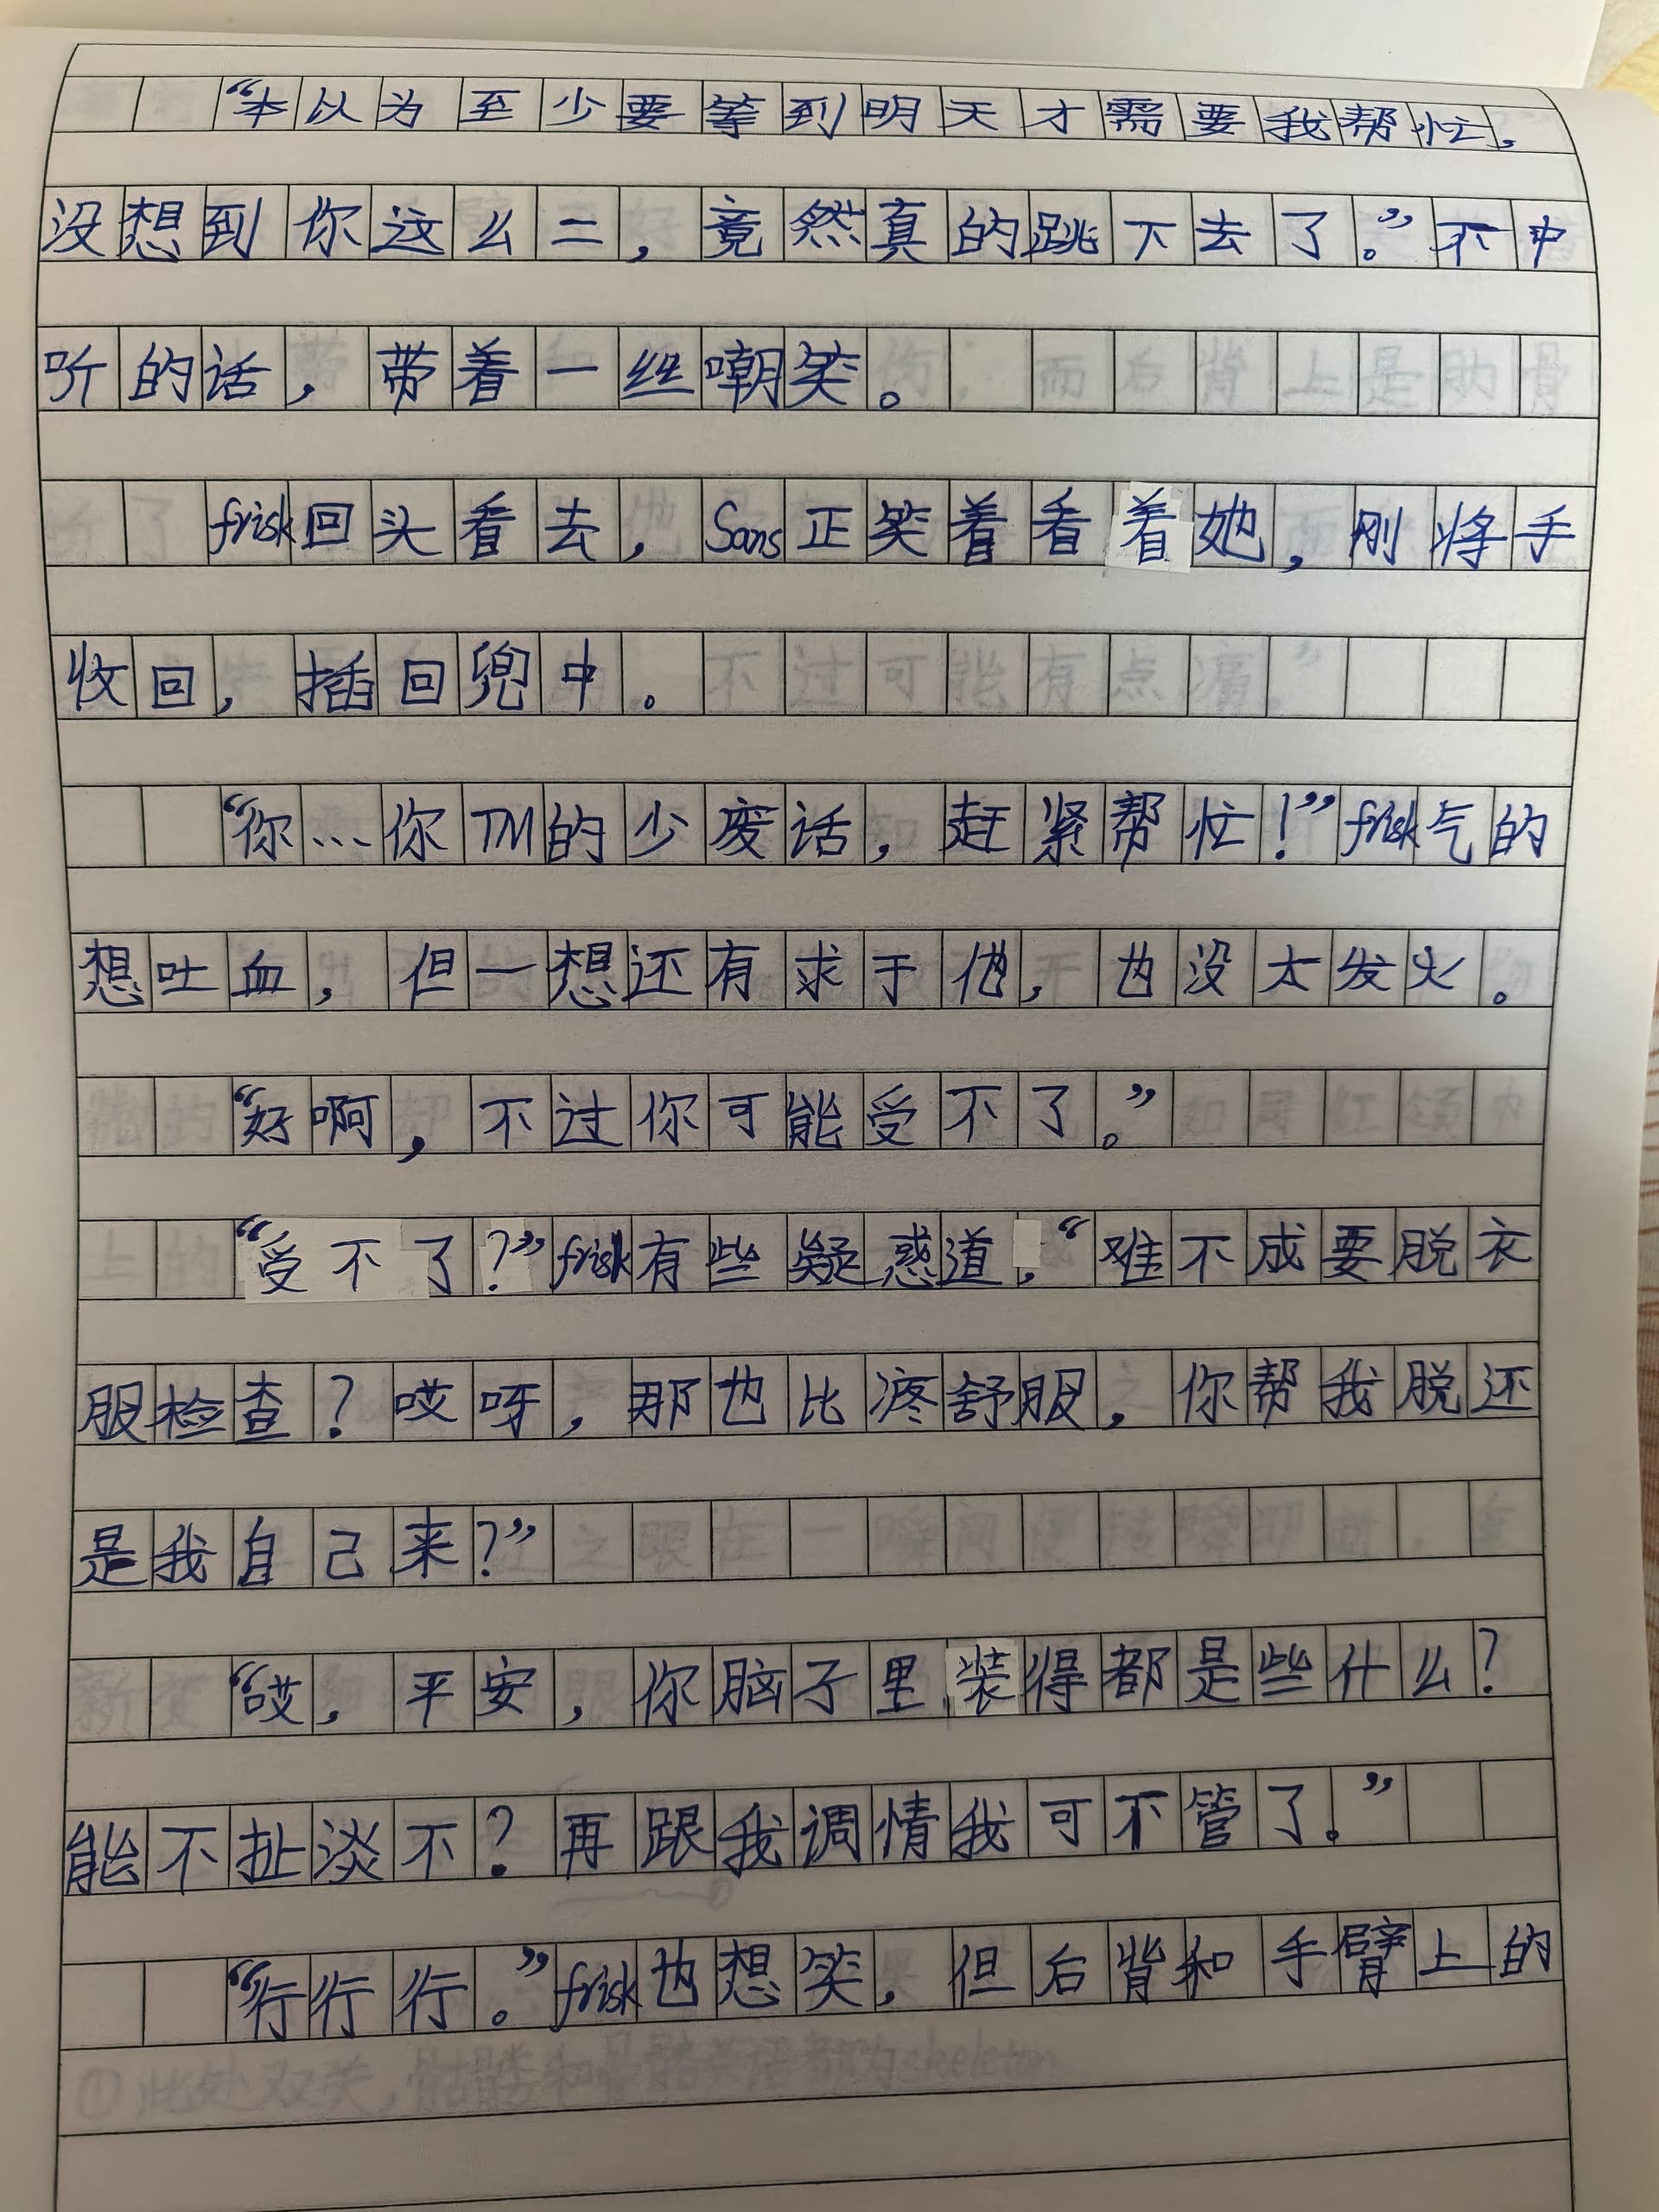 “本以为至少要等到明天才需要我帮忙，
没想到你这么二，竟然真的跳下去了。”不中
听的话，带着一丝嘲笑。
frisk回头看去，Sans正笑着看着她，刚将手
收回，插回兜中。
“你…你TM的少废话，赶紧帮忙！”frisk气的
想吐血，但一想还有求于他，也没太发火。
“好啊，不过你可能受不了。”
“受不了？”frisk有些疑惑道，“难不成要脱衣
服检查？哎呀，那也比疼舒服，你帮我脱还
是我自己来？”
“哎，平安，你脑子里装得都是些什么？
能不扯淡不？再跟我调情我可不管了。”
“行行行。”frisk也想笑，但后背和手臂上的
①此处双关，骷髅和骨骼英语都为skeleton